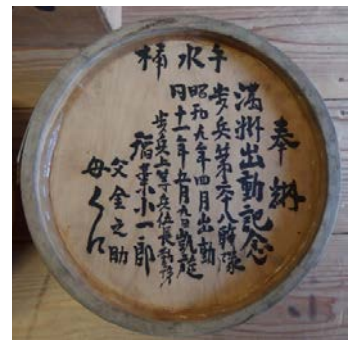 手水桶
奉納
満州出動記念
歩兵第六十八聯隊
昭和九年四月出動
同十一年五月九日凱旋
歩兵上等兵伍長勤務
稲葉小一郎
父金之助
母